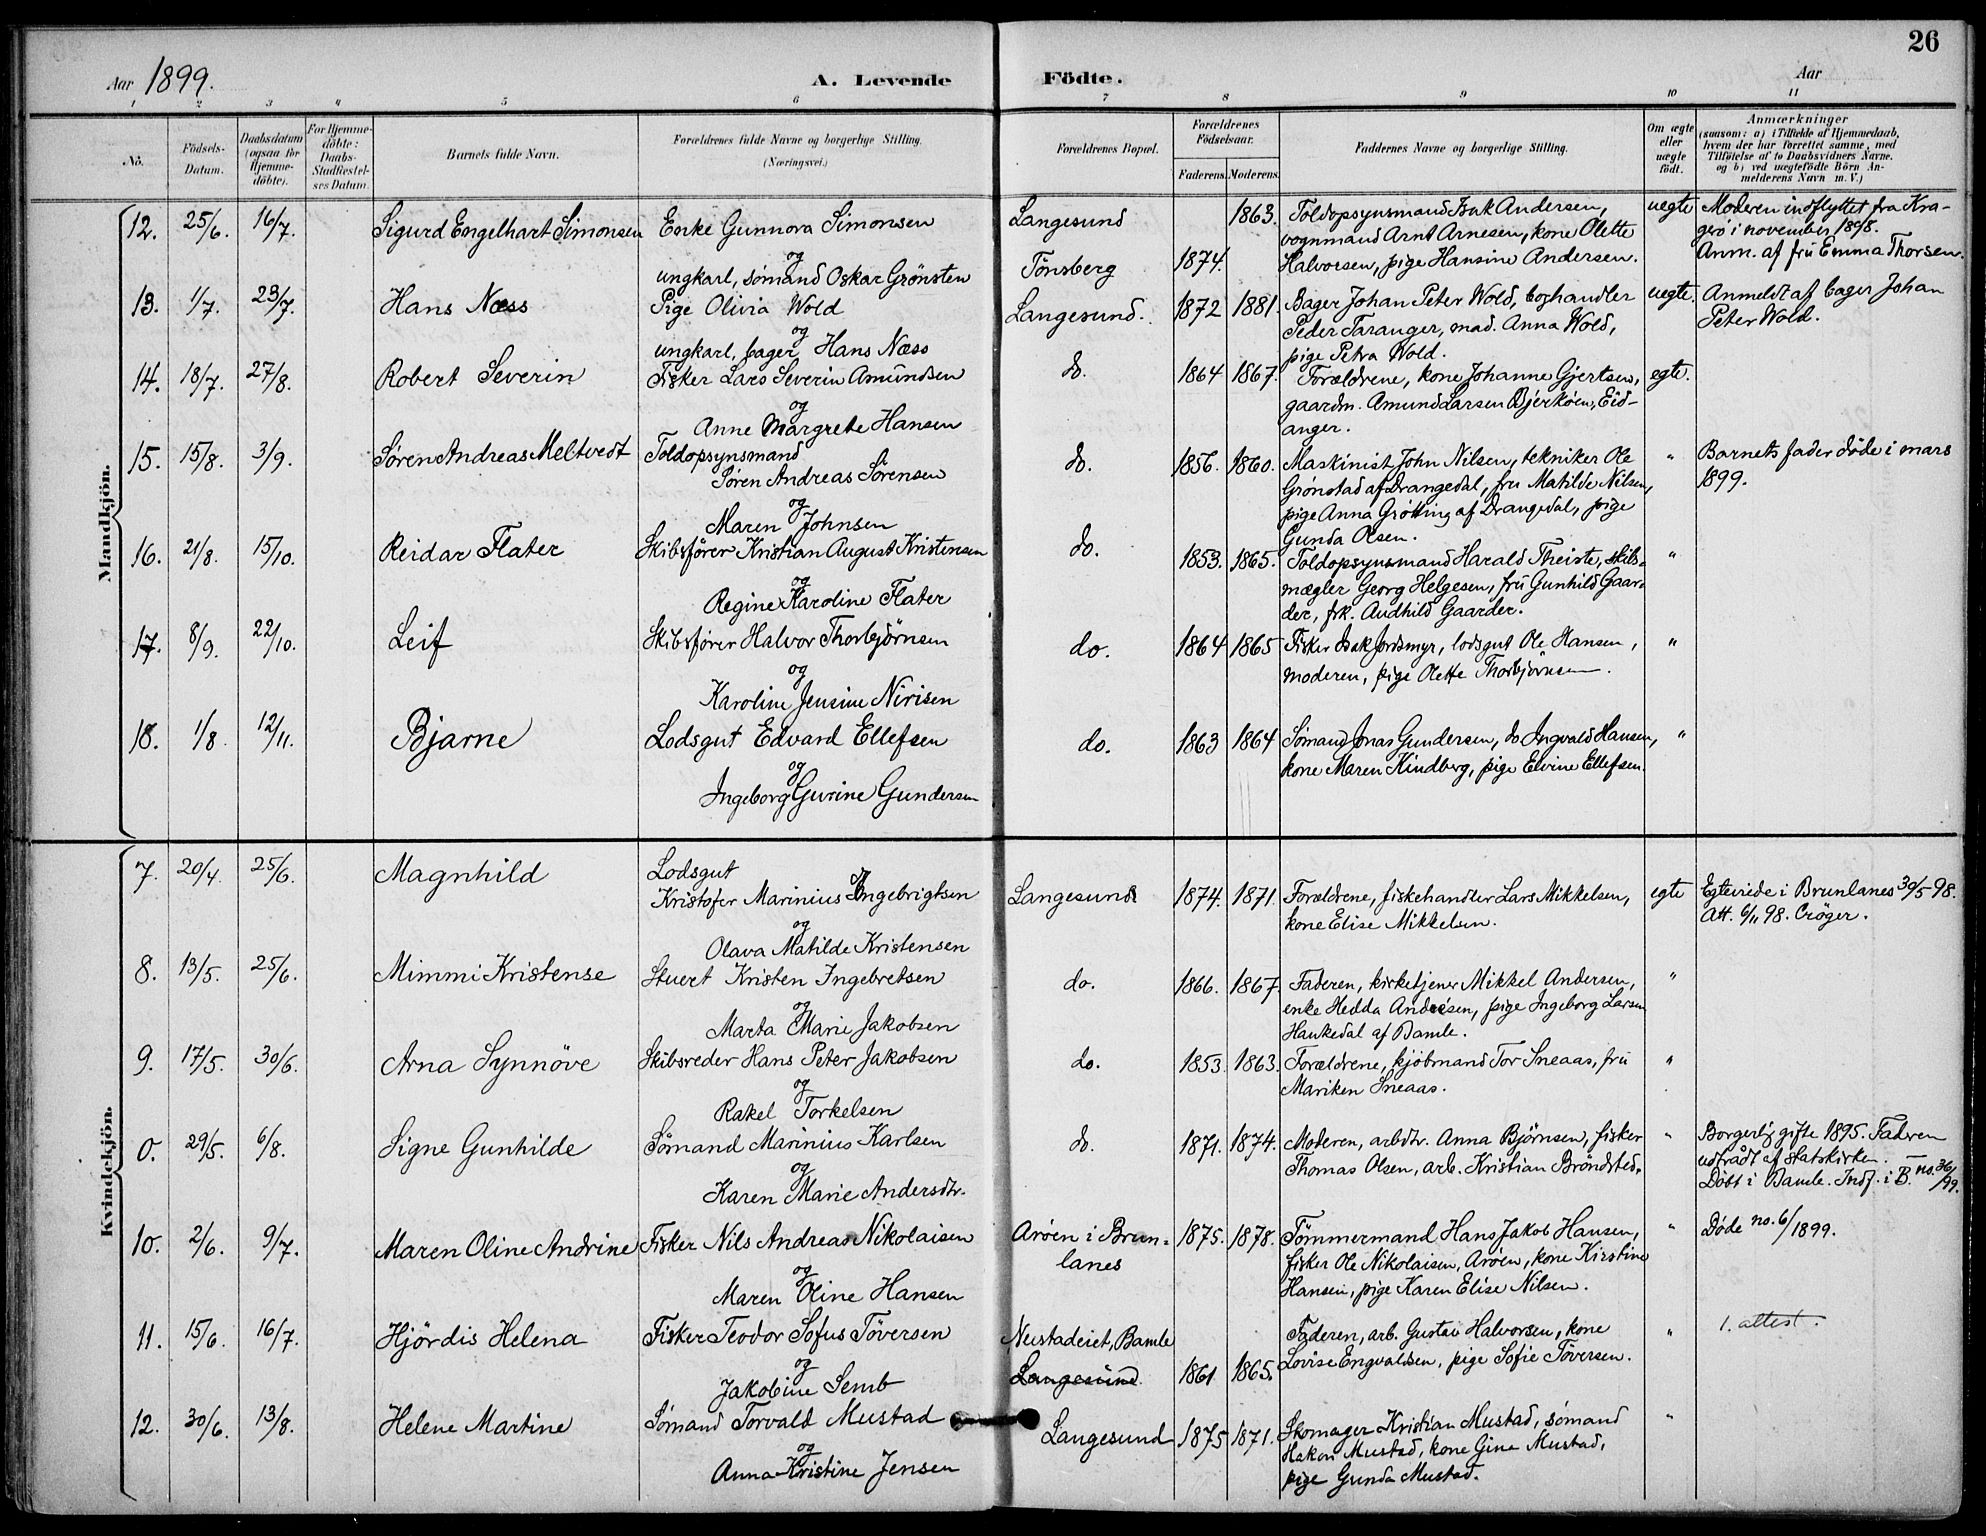 26
Aar 1899.
A. Levende Födte.
Aar
1 2 3 4 5 6 7 8 9 10 11
No.
Födsels-
Datum.
Daabsdatum
(ogsaa for
Hjemme-
döbte).
For Hjemme-
döbte:
Daabs-
Stadfæstel-
ses Datum.
Barnets fulde Navn.
Forældrenes fulde Navne og borgerlige Stilling.
(Næringsvei.)
Forældrenes Bopæl.
Forældrenes
Födselsaar.
Faderens.
Moderens.
Faddernes Navne og borgerlige Stilling.
Om ægte
eller
uægte
født.
Anmærkninger
(saasom: a) i Tilfælde af Hjemmedaab,
hvem der har forrettet samme, med
Tilføielse af to Daabsvidners Navne.
og b) ved uægtefödte Börn An-
melderens Navn m. V.)
Mandkjön.
12. 25/6. 16/7. Sigurd Engelhart Simonsen Enke Gunnora Simonsen Langesund 1863. Toldopsynsmand Isak Andersen, uegte Moderen indflyttet fra Kra-
vognmand Arnt Arnesen, kone Olette gerø i november 1898.
og
ungkarl, sømand Oskar Grønsten Tønsberg 1874. Halvorsen, pige Hansine Andersen. Anm. af fru Emma Thorsen.
13. 1/7. 23/7. Hans Næss Pige Olivia Wold Langesund. 1872 1881. Bager Johan Peter Wold, boghandler uegte. Anmeldt af bager Johan
og Peder Taranger, mad. Anna Wold, Peter Wold.
ungkarl, bager Hans Næss pige Petra Wold.
14. 18/7. 27/8. Robert Severin Fisker Lars Severin Amundsen do. 1864 1867. Forældrene, kone Johanne Gjertsen, egte.
og gaardm. Amund Larsen Bjerkøen, Eid-
Anne Margrete Hansen anger.
15. 15/8. 3/9. Søren Andreas Meltvedt Toldopsynsmand do. 1856. 1860. Maskinist John Nilsen, tekniker Ole " Barnets fader døde i mars
Søren Andreas Sørensen Grønstad af Drangedal, fru Matilde Nilsen, 1899.
og pige Anna Grøtting af Drangedal, pige
Maren Johnsen Gunda Olsen.
16. 21/8. 15/10. Reidar Flater Skibsfører Kristian August Kristensen do. 1853. 1865. Toldopsynsmand Harald Theiste, skibs- "
og mægler Georg Helgesen, fru Gunhild Gaar-
Regine Karoline Flater der, frk. Audhild Gaarder.
17. 8/9. 22/10. Leif Skibsfører Halvor Thorbjørnsen do. 1864 1865 Fisker Isak Jordsmyr, lodsgut Ole Hansen, "
og moderen, pige Olette Thorbjørnsen.
Karoline Jensine Nirisen
18. 1/8. 12/11. Bjarne Lodsgut Edvard Ellefsen do. 1863 1864 Sømand Jonas Gundersen, do Ingvald Hansen, "
og kone Maren Kindberg, pige Elvine Ellefsen.
Ingeborg Gurine Gundersen
Kvindekjön.
7. 20/4. 25/6. Magnhild Lodsgut
Kristofer Marinius Ingebrigtsen Langesund 1874. 1871. Forældrene, fiskehandler Lars Mikkelsen, egte Egteviede i Brunlanes 30/5 98.
og kone Elise Mikkelsen. Att. 6/11 98. Crøger.
Olava Matilde Kristensen
8. 13/5. 25/6. Mimmi Kristense Stuert Kristen Ingebretsen do. 1866. 1867. Faderen, kirketjener Mikkel Andersen, "
og enke Hedda Andersen, pige Ingeborg Larsen
Marta Marie Jakobsen Haukedal af Bamle.
9. 17/5. 30/6. Arna Synnöve Skibsreder Hans Peter Jakobsen do. 1853 1863. Forældrene, kjøbmand Tor Sneaas, fru "
og Mariken Sneaas.
Rakel Torkelsen
0. 29/5. 6/8. Signe Gunhilde Sømand Marinius Karlsen do. 1871. 1874. Moderen, arbdtr. Anna Bjørnsen, fisker " Borgerlig gifte 1895. Faderen
og Thomas Olsen, arb. Kristian Brøndsted. udtrådt af statskirken.
Karen Marie Andersdtr. Døbt i Bamle. Indf. i B. no. 36/99.
10. 2/6. 9/7. Maren Oline Andrine Fisker Nils Andreas Nikolaisen Arøen i Brun- 1875. 1878. Tømmermand Hans Jakob Hansen, " Døde no. 6/1899.
og lanes fisker Ole Nikolaisen, Arøen, kone Kirstine
Maren Oline Hansen Hansen, pige Karen Elise Nilsen.
11. 15/6. 16/7. Hjördis Helena Fisker Teodor Sofus Töversen Neustadeiet, Bamle Faderen, arb. Gustav Halvorsen, kone " 1. attest.
og Langesund 1861 1865. Lovise Engvaldsen, pige Sofie Töversen.
Jakobine Semb
12. 30/6. 13/8. Helene Martine Sømand Torvald Mustad Langesund 1875 1871. Skomager Kristian Mustad, sømand "
og Hakon Mustad, kone Gina Mustad,
Anna Kristine Jensen pige Gunda Mustad.